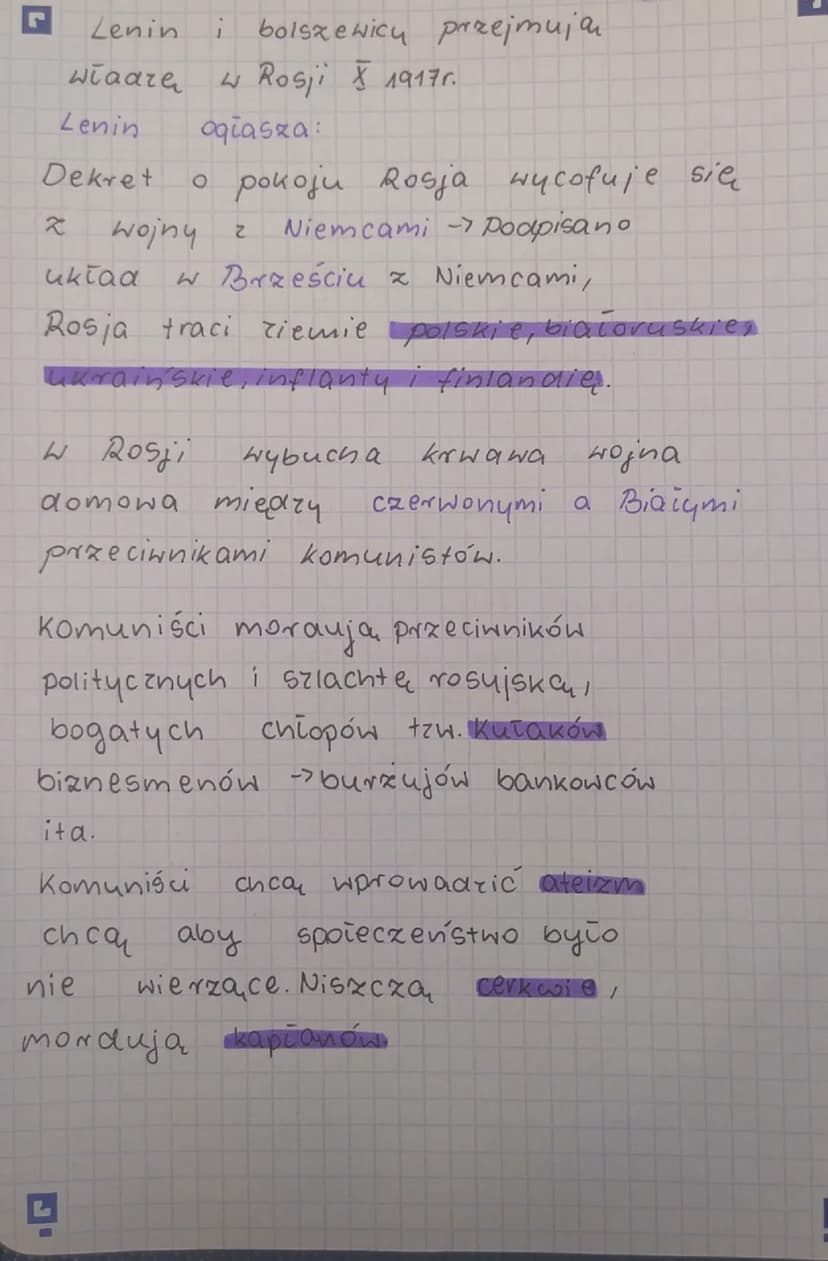 Lenin i bolszewicy przejmują
władzę w Rosji X 1917r.
Lenin ogłasza:
Dekret o pokoju Rosja wycofuje się
z wojny z Niemcami -> Podpisano
układ w Brześciu z Niemcami,
Rosja traci ziemie polskie, białoruskie,
ukraińskie, inflanty i finlandię.
w Rosji wybucha krwawa wojna
domowa między czerwonymi a Białymi
przeciwnikami komunistów.
Komuniści mordują przeciwników
politycznych i szlachtę rosyjską,
bogatych chłopów tzw. kułaków
biznesmenów -> burżujów bankowców
itd.
Komuniści chcą wprowadzić ateizm
chcą aby społeczeństwo było
nie wierzące. Niszczą cerkwie,
mordują kapłanów